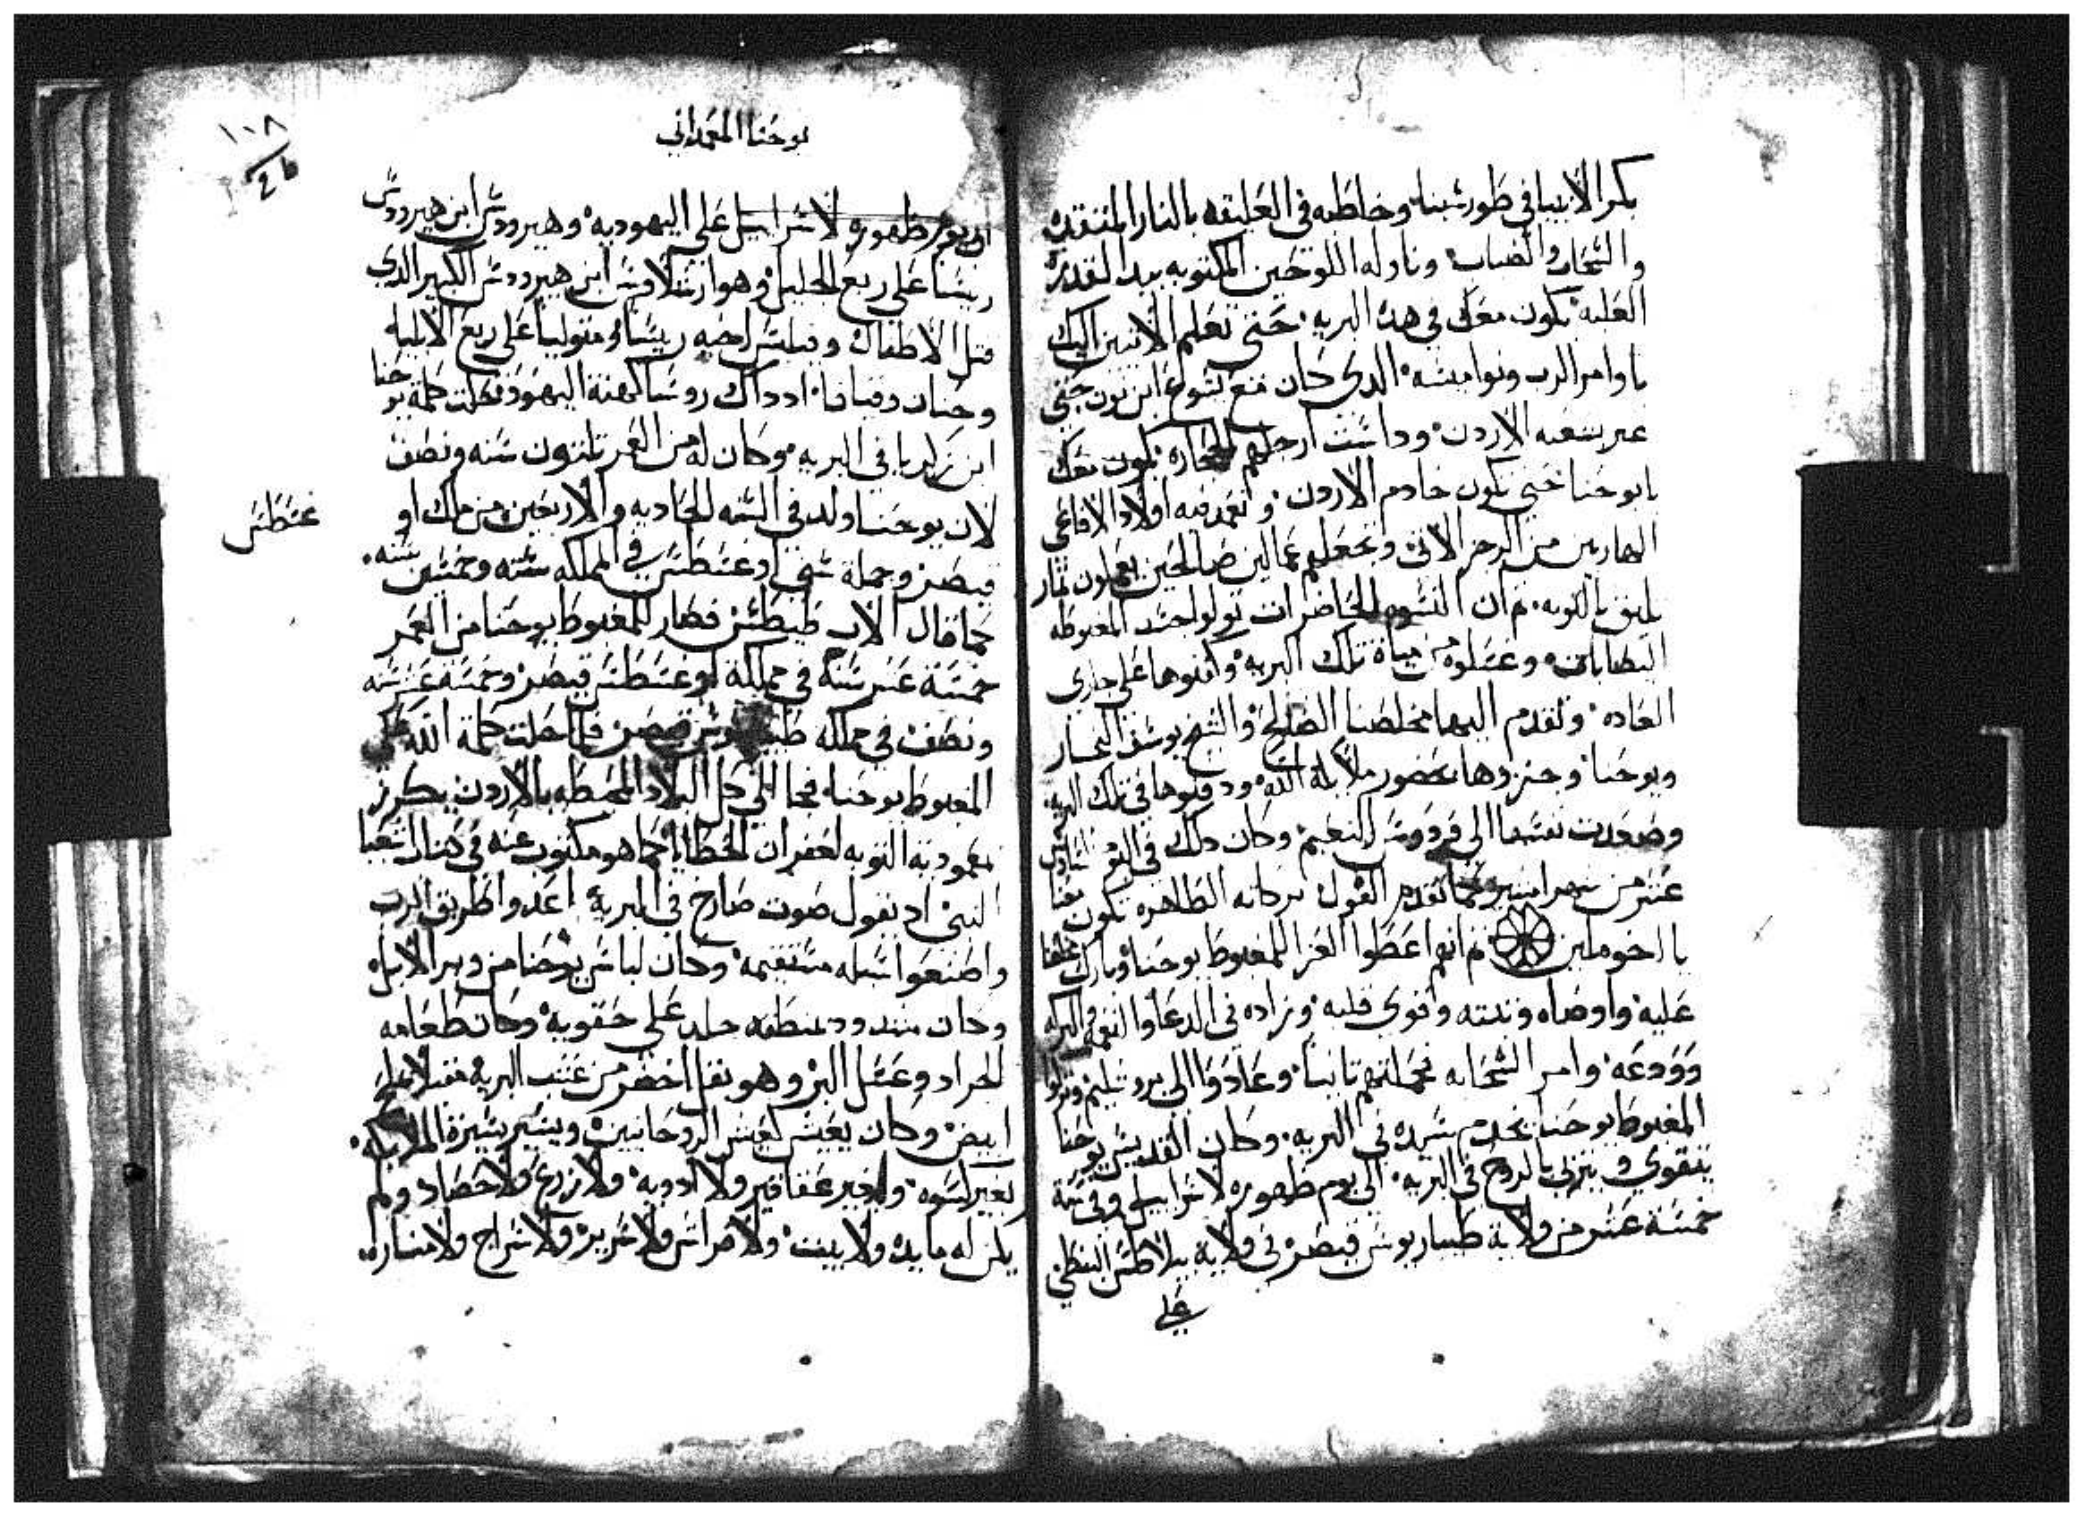 بكر الانبيا في طور سينا وخاطبه في العليقه بالنار المتقده
والسحاب والضباب وناوله اللوحين المكتوبه بيد القدره
العليه تكون معك في هده البريه حتى تعلم الاتيين اليك
باوامر الرب ونواميسه الدي كان مع يشوع ابن نون حتى
عبر بشعبه الاردن وداست ارجلهم الحجاره تكون معك
يا يوحنا حتى تكون خادم الاردن وتعمد فيه اولاد الافاعي
الهاربين من الرجز الاتي وتجعلهم عمالين صالحين يعملون تمار
يليق بالتوبه تم ان النسوه الحاضرات تولوا جسد المغبوطه
اليصابات وغسلوه من مياة تلك البريه وكفنوها على جاري
العاده وتقدم اليها مخلصنا الصالح والشيخ يوسف النجار
ويوحنا وجنزوها بحضور ملايكة الله ودفنوها في تلك البريه
وصعدت نفسها الى فردوس النعيم وكان دلك في اليوم السادس
عشر من شهر امشير كما تقدم القول بركاته الطاهره تكون معنا
يا اخوه امين تم انهم اعطوا العزا للمغبوط يوحنا وبارك مخلصنا
عليه واوصاه وتبته وقوى قلبه وزاده في الدعا والنعمه والبركه
وودعه وامر السحابه فحملتهم تانيا وعادوا الى يروشليم وتركوا
المغبوط يوحنا يخدم سيده في البريه وكان القديس يوحنا
يتقوي ويتربي بالروح في البريه الى يوم ظهوره لاسراييل وفي سنة
خمسة عشر من ولاية طيباريوس قيصر في ولاية بيلاطس النبطي
على
يوحنا المعمداني
١٠٨
الى يوم ظهوره لاسراييل على اليهوديه وهيرودس ابن هيرودس
ريسا على ربع الجليل وهو ارشلاوس ابن هيرودس الكبير الدي
قتل الاطفال وفيلبس اخيه ريسا ومتوليا على ربع
وحنان وقيافا اد داك روسا كهنة اليهود فحلت كلمة يوحنا
ابن زكريا في البريه وكان له من العمر تلتون سنه ونصف
لان يوحنا ولد في السنه الحاديه والاربعين من ملك او
غسطس
قيصر وجملة سني اوغسطس في المملكه سته وخمسين سنه
كما قال الاب فصار للمغبوط يوحنا من العمر
خمسة عشر سنة في مملكة اوغسطس قيصر وخمسة عشر سنه
ونصف في مملكه قيصر فلما حلت كلمة الله على
المغبوط يوحنا فجا الى كل البلاد المحيطه بالاردن يكرز
بمعمودية التوبه لغفران الخطايا كما هو مكتوب عنه في كتاب اشعيا
النبي اد يقول صوت صارخ في البرية اعدوا طريق الرب
واصنعوا سبله مستقيمه وكان لباس يوحنا من وبر الابل
وكان مشدود بمنطقه جلد على حقويه وكان طعامه
الجراد وعسل البر وهو بقل اخضر من عشب البريه
ابيض وكان يعيش كعيش الروحانيين ويسير بسيرة الملايكه
بغير كسوه ولا عقاقير ولا ادويه ولا زرع ولا حصاد ولم
يكن له مايده ولا بيت ولا فراش ولا سرير ولا سراج ولا مناره